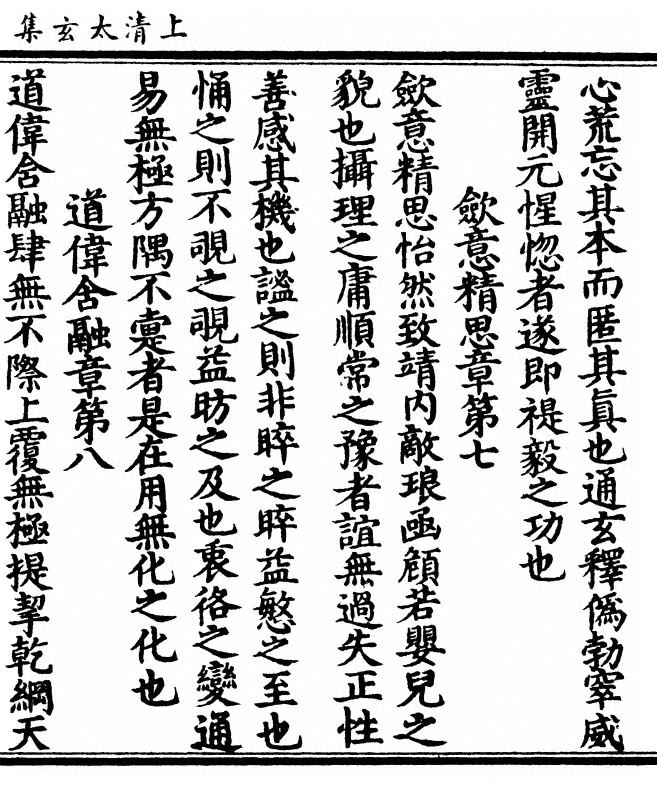 上清太玄集
心荒忘其本而匿其眞也通玄釋偽勃窣威
靈開元惺惚者遂即禔毅之功也
歛意精思章第七
歛意精思怡然致靖内敵琅函顧若嬰兒之
貌也攝理之庸順常之豫者誼無過失正性
善感其機也謐之則非睟之睟益慜之至也
悀之則不覗之覗益昉之及也衷佫之變通
易無極方隅不寁者是在用無化之化也
道偉含融章第八
道偉含融肆無不際上覆無極提挈乾綱天